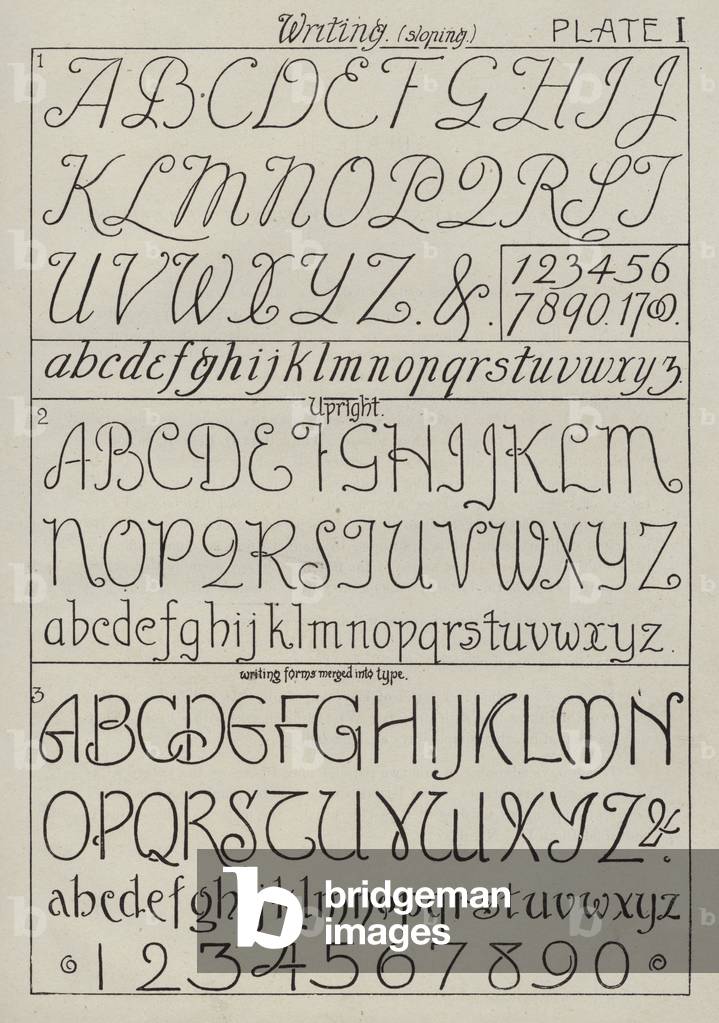 Writing. (sloping.) PLATE I
1
ABCDEFGHIJ
KLMNOPQRST
UVWXYZ. &.
123456
7890. 17
abcdefghijklmnopqrstuvwxyz.
Upright.
2
ABCDEFGHIJKLM
NOPQRSTUVWXYZ
abcdefghijklmnopqrstuvwxyz.
writing forms merged into type.
3
ABCDEFGHIJKLMN
OPQRSTUVWXYZ&.
abcdefghijklmnopqrstuvwxyz
1234567890
b bridgeman
images